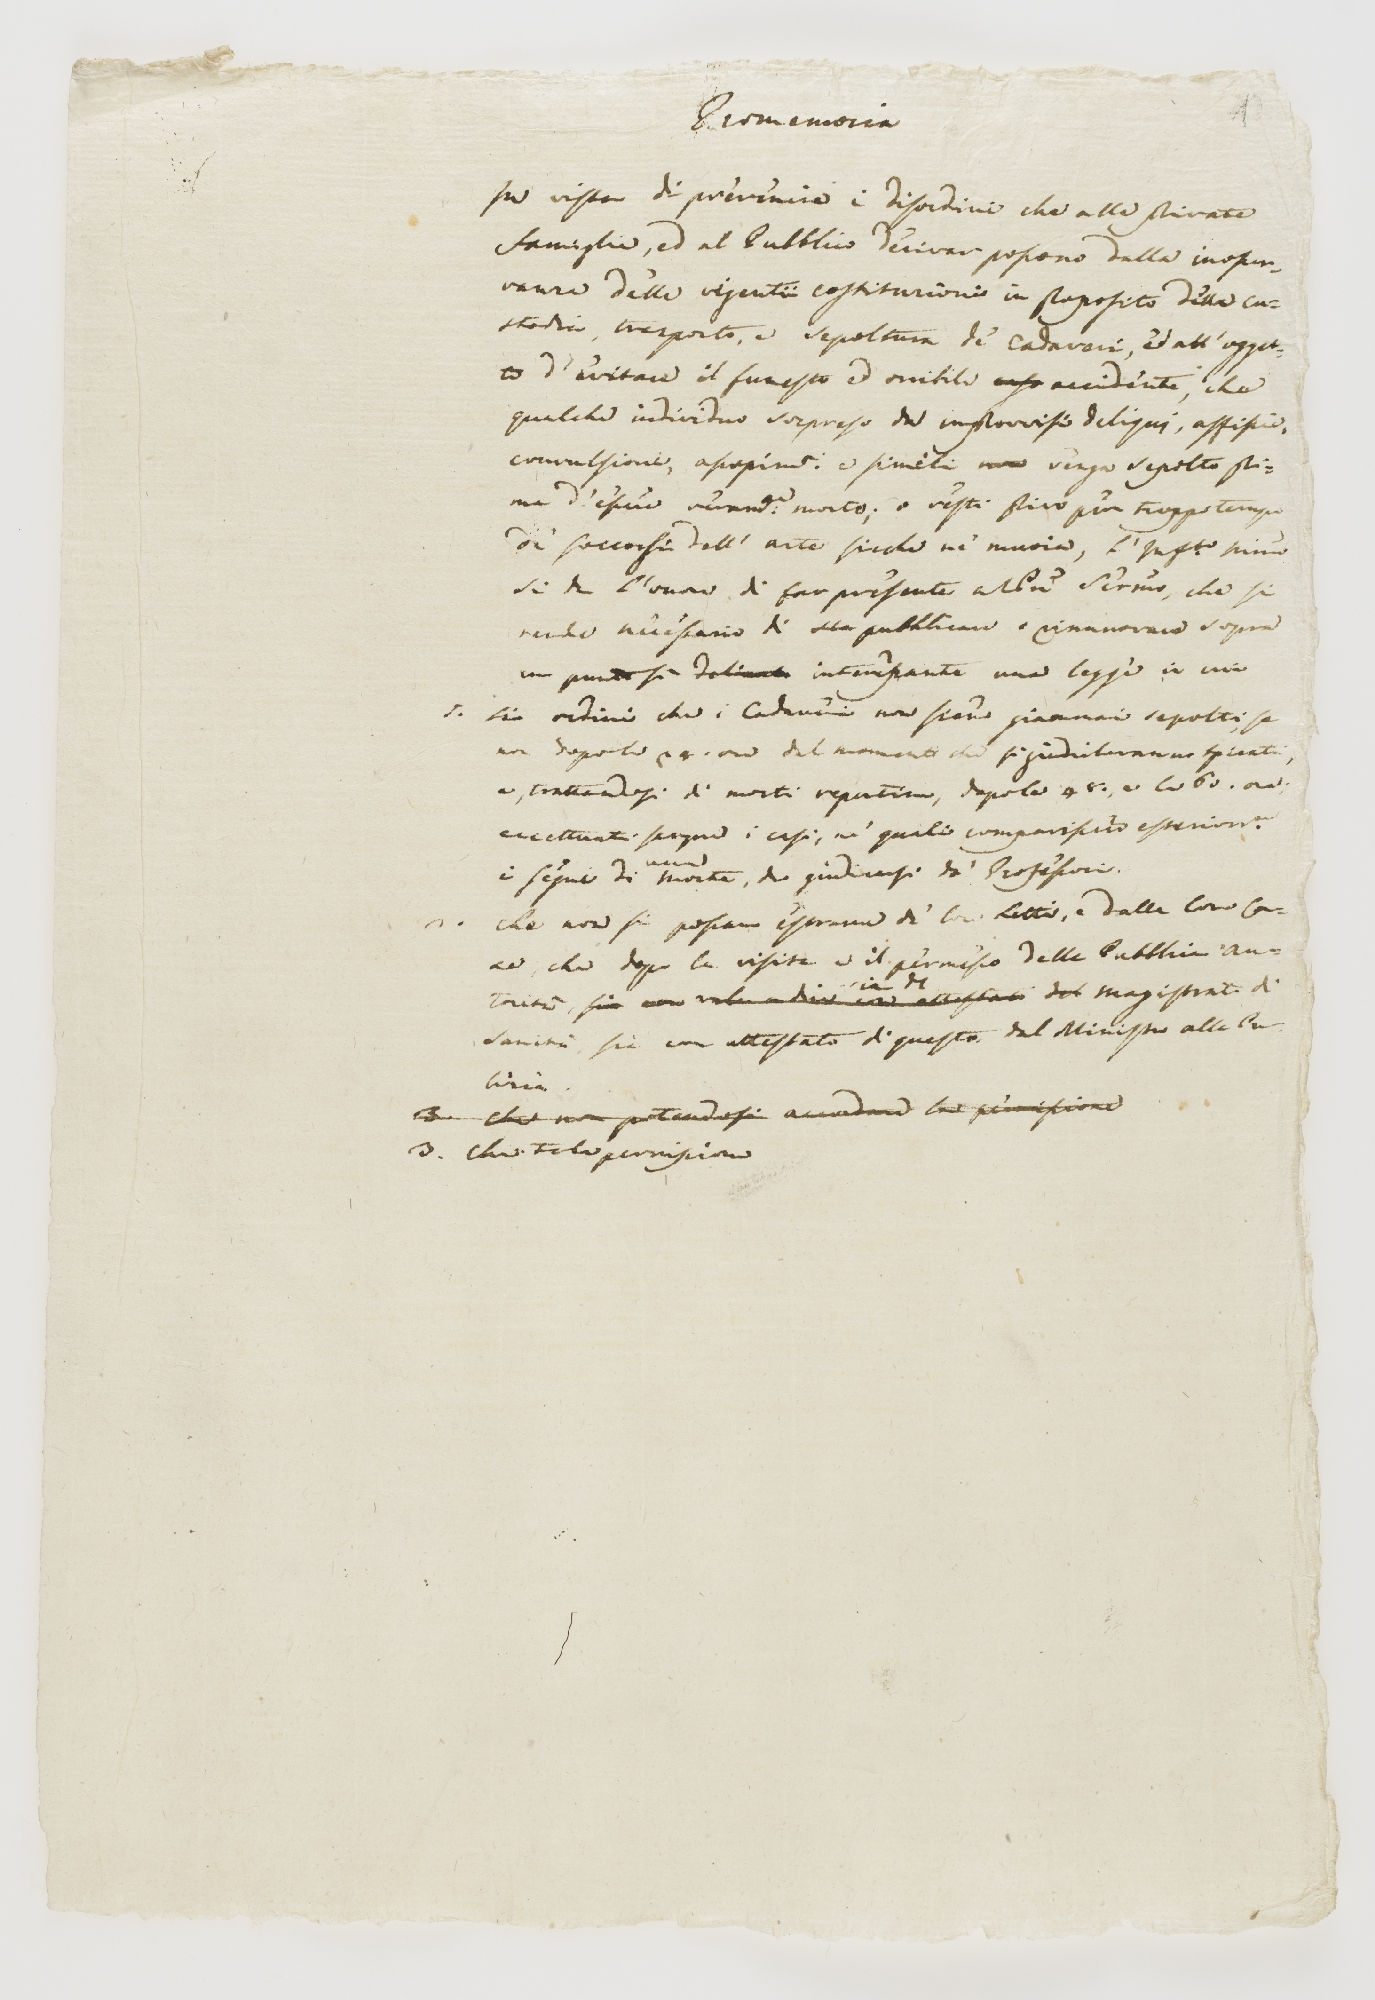 Promemoria
In vista di prevenire i disordini che alle private
famiglie, ed al Pubblico derivar possono dalla inosser-
vanza delle vigenti costituzioni in proposito della cu-
stodia, trasporto, e sepoltura de' Cadaveri, ed all'ogget-
to d'evitare il funesto ed orribile caso accidente, che
qualche individuo sorpreso da improvvisi deliquj, assfisie,
convulsioni, e simili non venga sepolto pri-
ma d'essere morto; o resti privo per troppo tempo
de' soccorsi dell'arte sicché ne muoia, l'
si da l'onore di far presente che si
rende necessario di pubblicare e rinnovare sopra
un punto sì delicato interessante una legge in cui
1. sia ordini che i Cadaveri non siano giammai sepolti, se
non dopo le 24. ore dal momento che si giudicheranno spirati,
e, trattandosi di morti repentine, dopo le 48., e le 60. ore;
eccettuati sempre i casi, ne' quali comparissero
i segni di vera morte, da giudicarsi da' Professori.
2. che non si possano estrarre de' loro letti, e dalle loro ca-
se, che dopo la visita e il permesso delle Pubblica au-
torità, sia con attestati del Magistrato di
ia del
Sanità, sia con attestato di questo, dal Ministro alla Pu
lizia.
3. che non potendosi accordare la permissione
3. che tale permissione